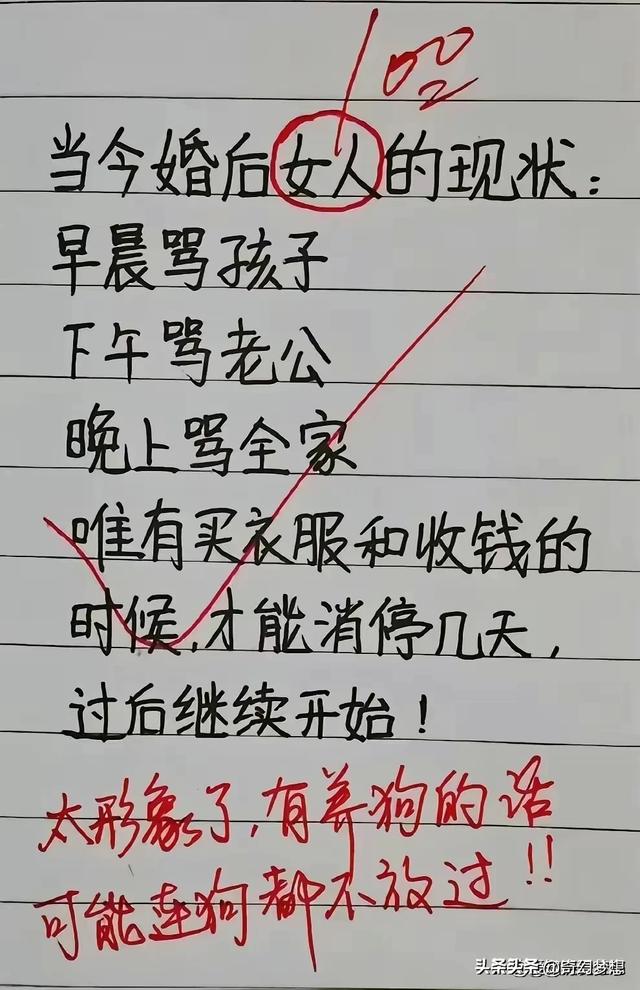 100
当今婚后女人的现状:
早晨骂孩子
下午骂老公
晚上骂全家
唯有买衣服和收钱的
时候,才能消停几天,
过后继续开始!
太形象了,有养狗的话
可能连狗都不放过!!
头条头条@奇幻梦想